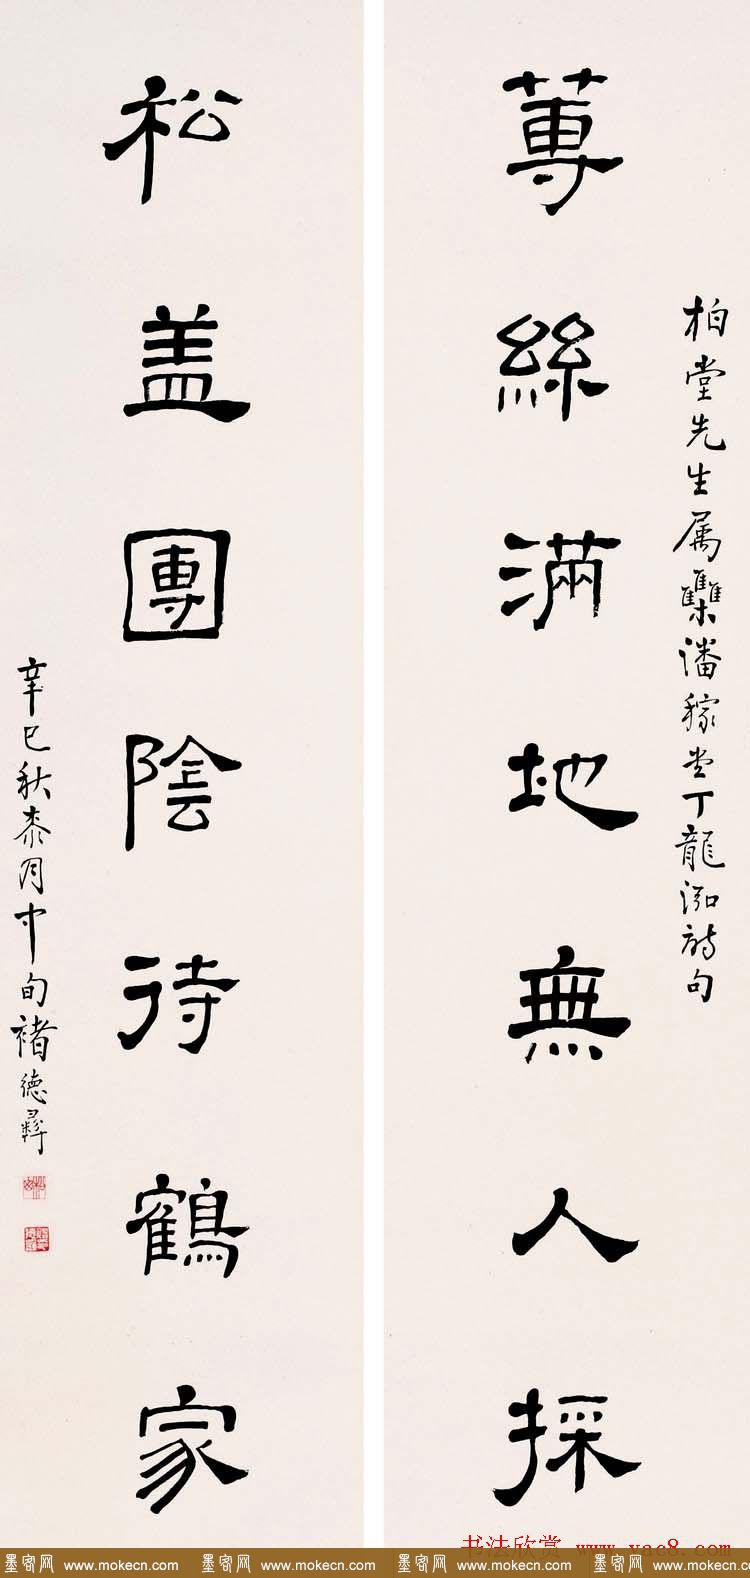 柏堂先生属集潘稼堂丁龍泓詩句
蓴絲滿地無人採
松盖團陰待鶴家
辛巳秋桼月中旬褚德彝
书法欣赏 www.yac8.com
墨客网 www.mokecn.com 墨客网 www.mokecn.com 墨客网 www.mokecn.com 墨客网 www.mokecn.com